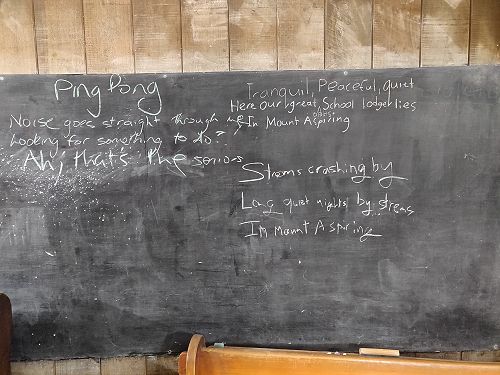 Ping Pong
Noise goes straight through me
Looking for something to do?
Ah, that's the seniors
Tranquil, Peaceful, quiet
Here our great School lodge lies
In Mount Aspiring
Streams crashing by
Long quiet nights by streams
In Mount Aspiring